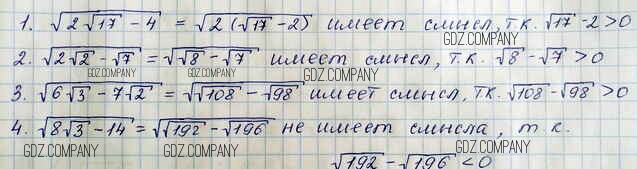 1. √(2√17 - 4) = √(2(√17 - 2)) имеет смысл, т.к. √17 - 2 > 0
GDZ.COMPANY
2. √(2√2 - √7) = √(√8 - √7) имеет смысл, т.к. √8 - √7 > 0
GDZ.COMPANY GDZ.COMPANY
3. √(6√3 - 7√2) = √(√108 - √98) имеет смысл, т.к. √108 - √98 > 0
4. √(8√3 - 14) = √(√192 - √196) не имеет смысла, т.к.
GDZ.COMPANY GDZ.COMPANY GDZ.COMPANY
√192 - √196 < 0